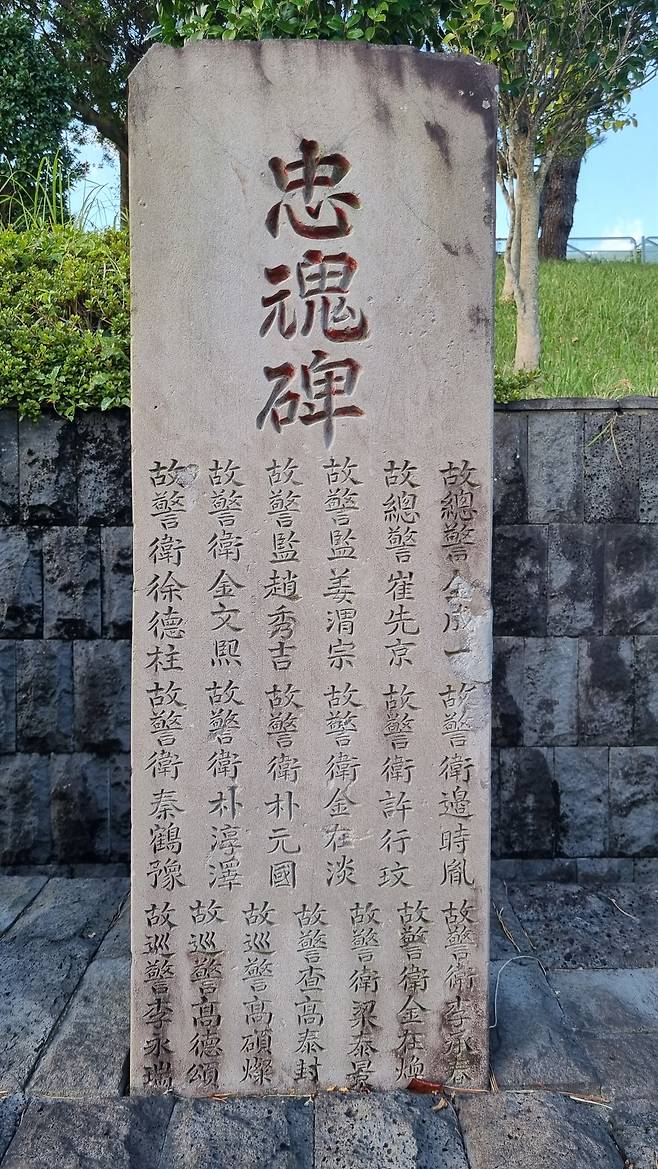 忠魂碑
故總警金成一
故總警崔先京
故警監姜渭宗
故警監趙秀吉
故警衛金文熙
故警衛徐德柱
故警衛邊時胤
故警衛許行玟
故警衛金在淡
故警衛朴元國
故警衛朴淳澤
故警衛秦鶴豫
故警衛李承春
故警衛金在煥
故警衛梁泰景
故警查高泰封
故巡警高碩燦
故巡警高德頌
故巡警李永瑞